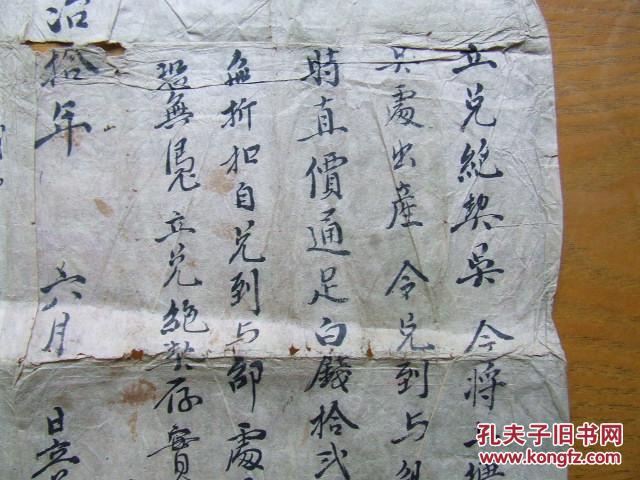 立兑絶契吳 今將 塘
吳處出産 今兑到与
時直價通足白錢拾弍
無折扣自兑到与部處
恐無凴立兑絶契存實
治拾年 六月 日立
孔夫子旧书网
www.kongfz.com